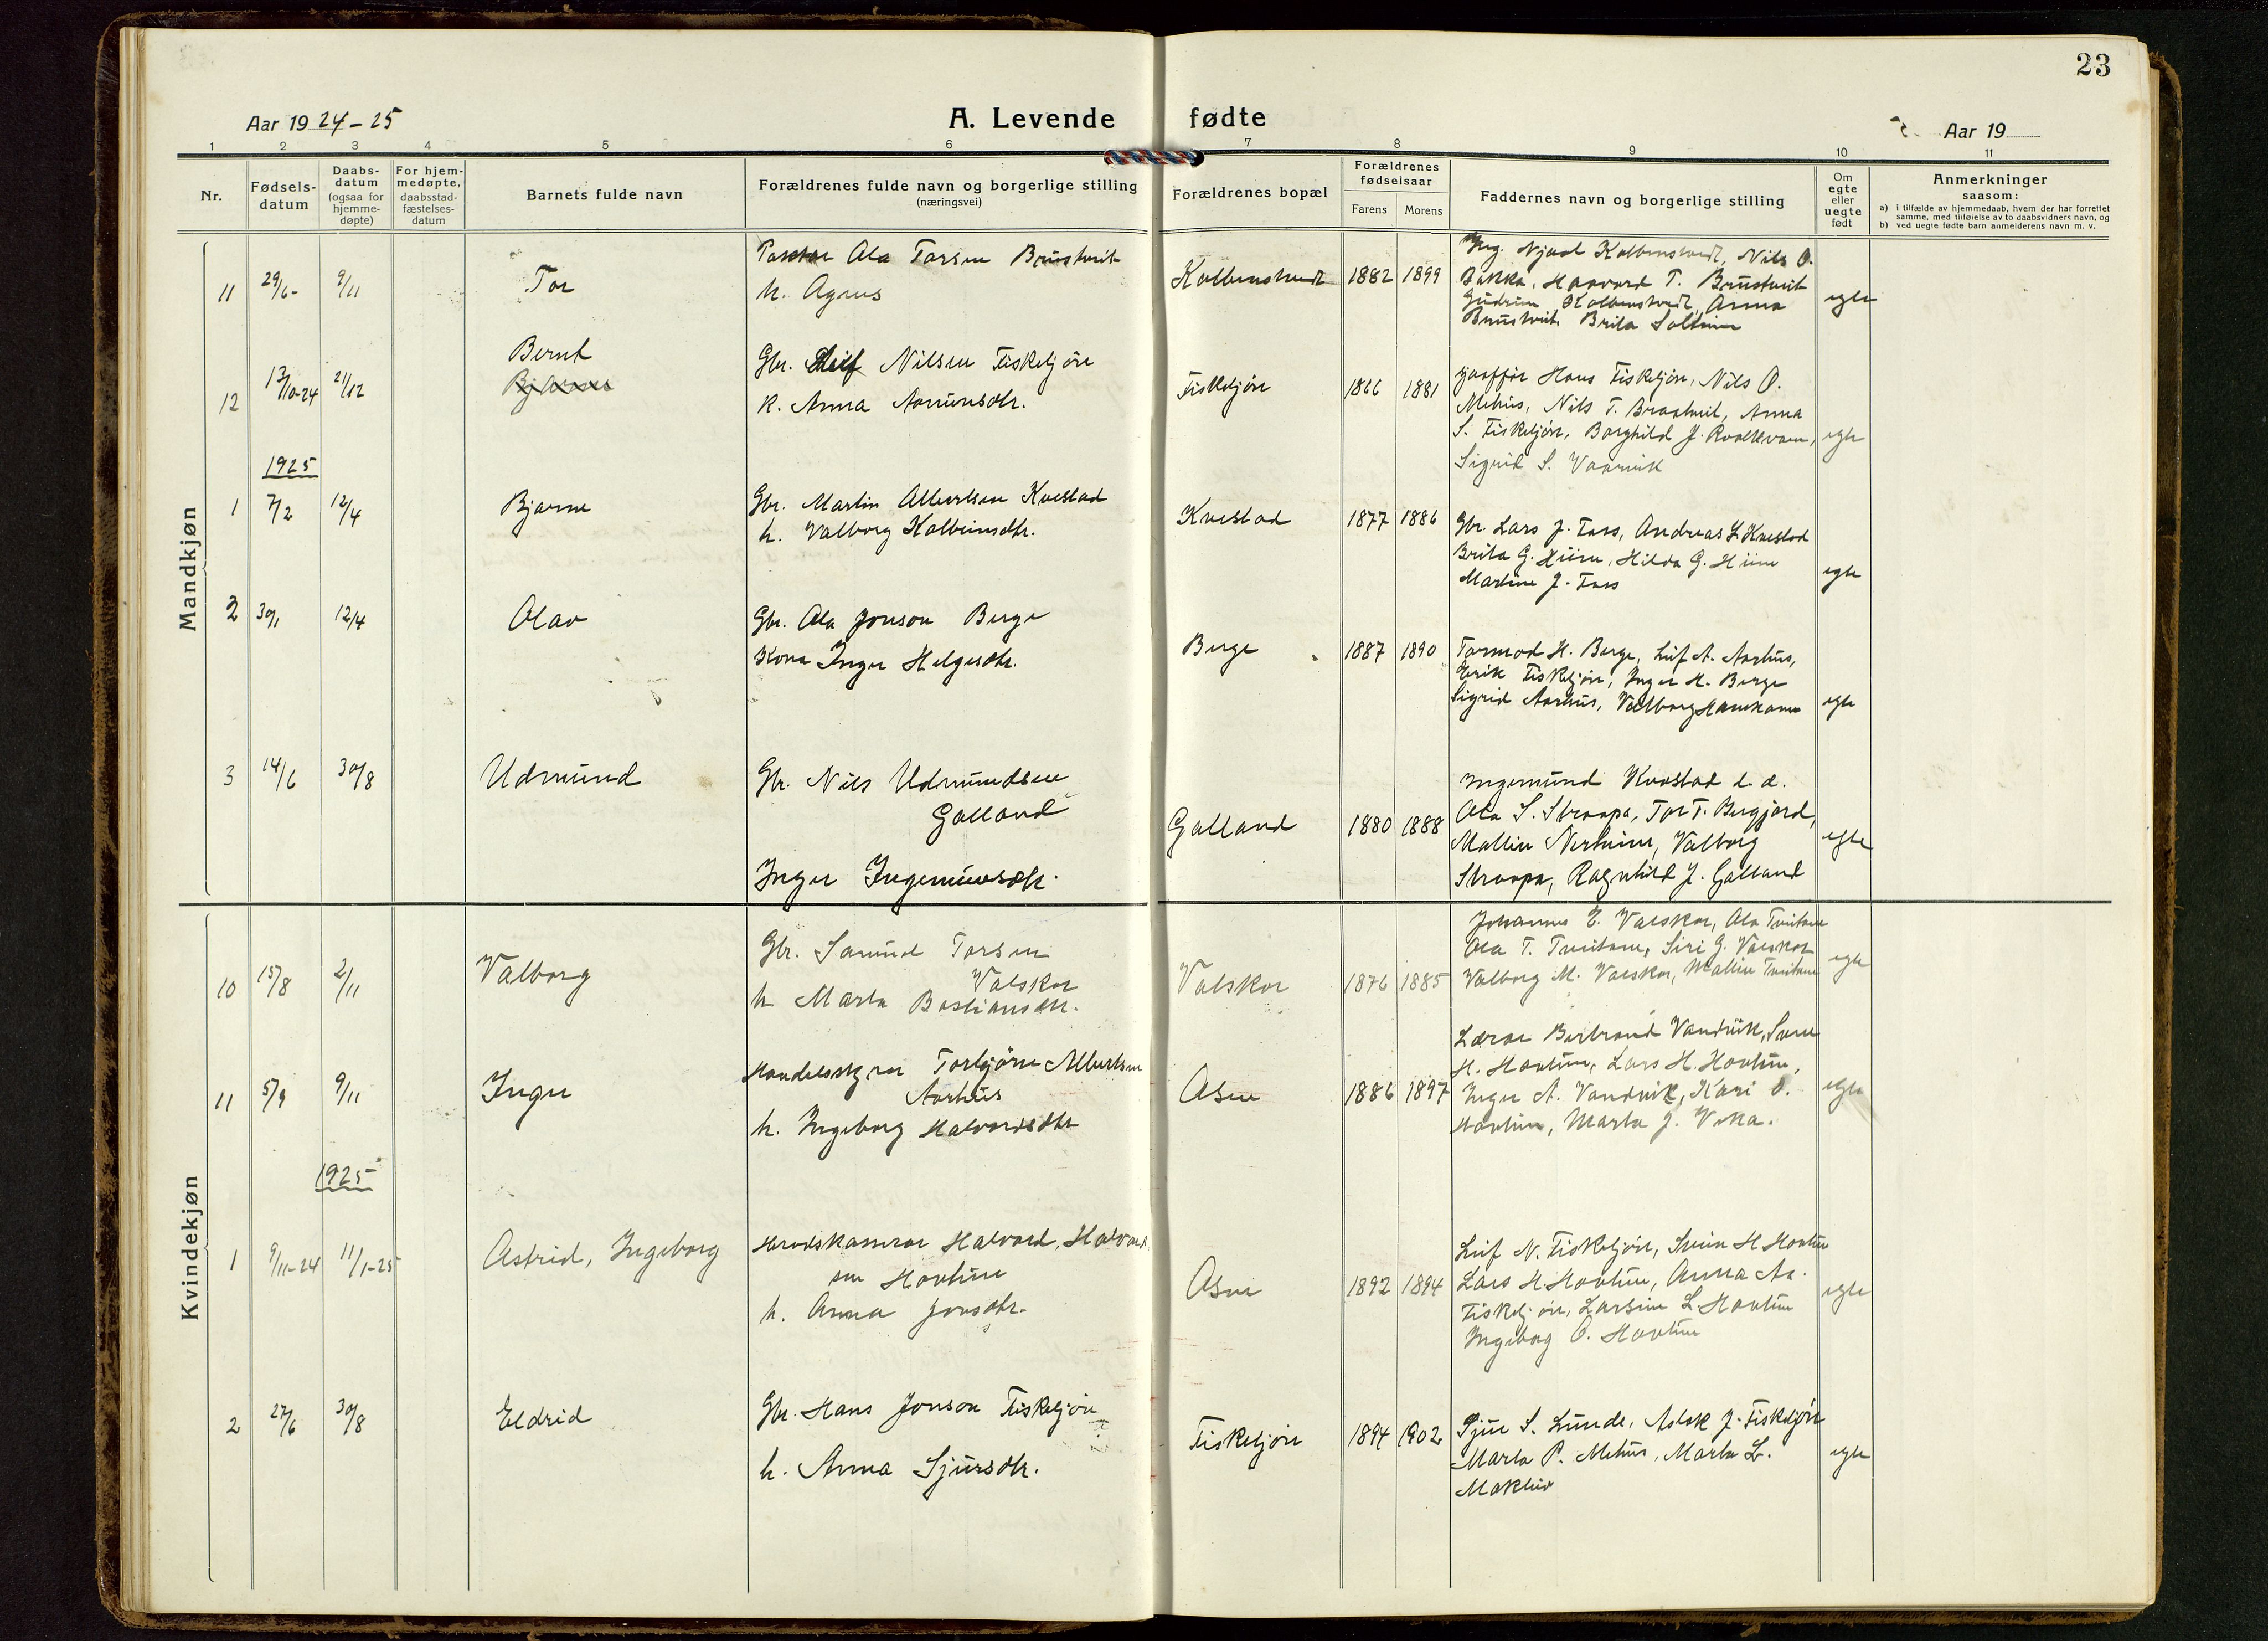 23
Aar 1924-25
A. Levende fødte
Aar 19
1 2 3 4 5 6 7 8 9 10 11
Nr.
Fødsels-
datum
Daabs-
datum
(ogsaa for
hjemme-
døpte)
For hjem-
medøpte,
daabsstad-
fæstelses-
datum
Barnets fulde navn
Forældrenes fulde navn og borgerlige stilling
(næringsvei)
Forældrenes bopæl
Forældrenes
fødselsaar
Farens Morens
Faddernes navn og borgerlige stilling
Om
egte
eller
uegte
født
Anmerkninger
saasom:
a) i tilfælde av hjemmedaab, hvem der har forrettet
samme, med tilføielse av to daabsvidners navn, og
b) ved uegte fødte barn anmelderens navn m. v.
Mandkjøn
11 29/6- 9/11 Tor
Ola Torsen Brustveit
h. Agnes
Kolbenstvedt 1882 1899
Kolbenstvedt, Nils O.
Bakka, Haavard T. Brustveit
Gudrun Kolbenstvedt, Anna
Brustveit, Brita Soltun
egte
12 13/10-24 21/12 Bernt
Bjarne
Gbr. Leif Nilsen Fiskekjøn
k. Anna Aamunsdtr.
Fiskekjøn 1866 1881
Hans Fiskekjøn, Nils O.
Mehus, Nils T. Brastveit, Anna
S. Fiskekjøn, Borghild J.
Sigrid S. Vaarvik
egte
1925
1 7/2 12/4 Bjarne
Gbr. Martin Albertsen Kvestad
h. Valborg Kolbeinsdtr.
Kvestad 1877 1886
Gbr. Lars J. Tors, Andreas L Kvestad
Brita G. Hiim, Hilda G. Hiim
Martine J. Tors
egte
2 30/1 12/4 Olav
Gbr. Ola Jonson Berge
Kona Inger Helgesdtr.
Berge 1887 1890
Tormod H. Berge, Leif A. Aarhus,
Eirik Fiskekjøn, Inger H. Berge
Sigrid Aarhus, Valborg
egte
3 14/6 30/8 Udmund
Gbr. Nils Udmundsen
Galland
Inger Ingemundsdtr.
Galland 1880 1888
Ingemund Kvestad d. e.
Ola S. Straapa, Tor T. Bergjord,
Malline Nerheim, Valborg
Straapa, Ragnhild J. Galland
egte
Kvindekjøn
10 15/8 2/11 Valborg
Gbr. Samund Torsen
Valskor
h Marta Bastiansdtr.
Valskor 1876 1885
Johannes E. Valskor, Ola Tveitane
Ola T. Tveitane, Siri G. Valskor
Valborg M. Valskor, Malline Tveitane
egte
11 5/9 9/11 Inger
Torbjørn Albertsen
Aarhus
h. Ingeborg Halvordsdtr
Asen 1886 1897
Lærar Bertrand Vandvik, Svein
H. Hovtun, Lars H. Hovtun,
Inger A. Vandvik, Kari O.
Hovtun, Marta J. Voka.
egte
1925
1 9/11-24 11/1-25 Astrid, Ingeborg
Heradskasserar Halvord Halvord-
sen Hovtun
h. Anna Jonsdtr.
Asen 1892 1894
Leif N. Fiskekjøn, Svein H Hovtun
Lars H. Hovtun, Anna Aa.
Fiskekjøn, Larsine L. Hovtun
Ingeborg O. Hovtun
egte
2 27/6 30/8 Eldrid
Gbr. Hans Jonson Fiskekjøn
h. Anna Sjursdtr.
Fiskekjøn 1894 1902
Sjur S. Lunde, Aslak J. Fiskekjøn
Marta P. Mehus, Marta L.
egte